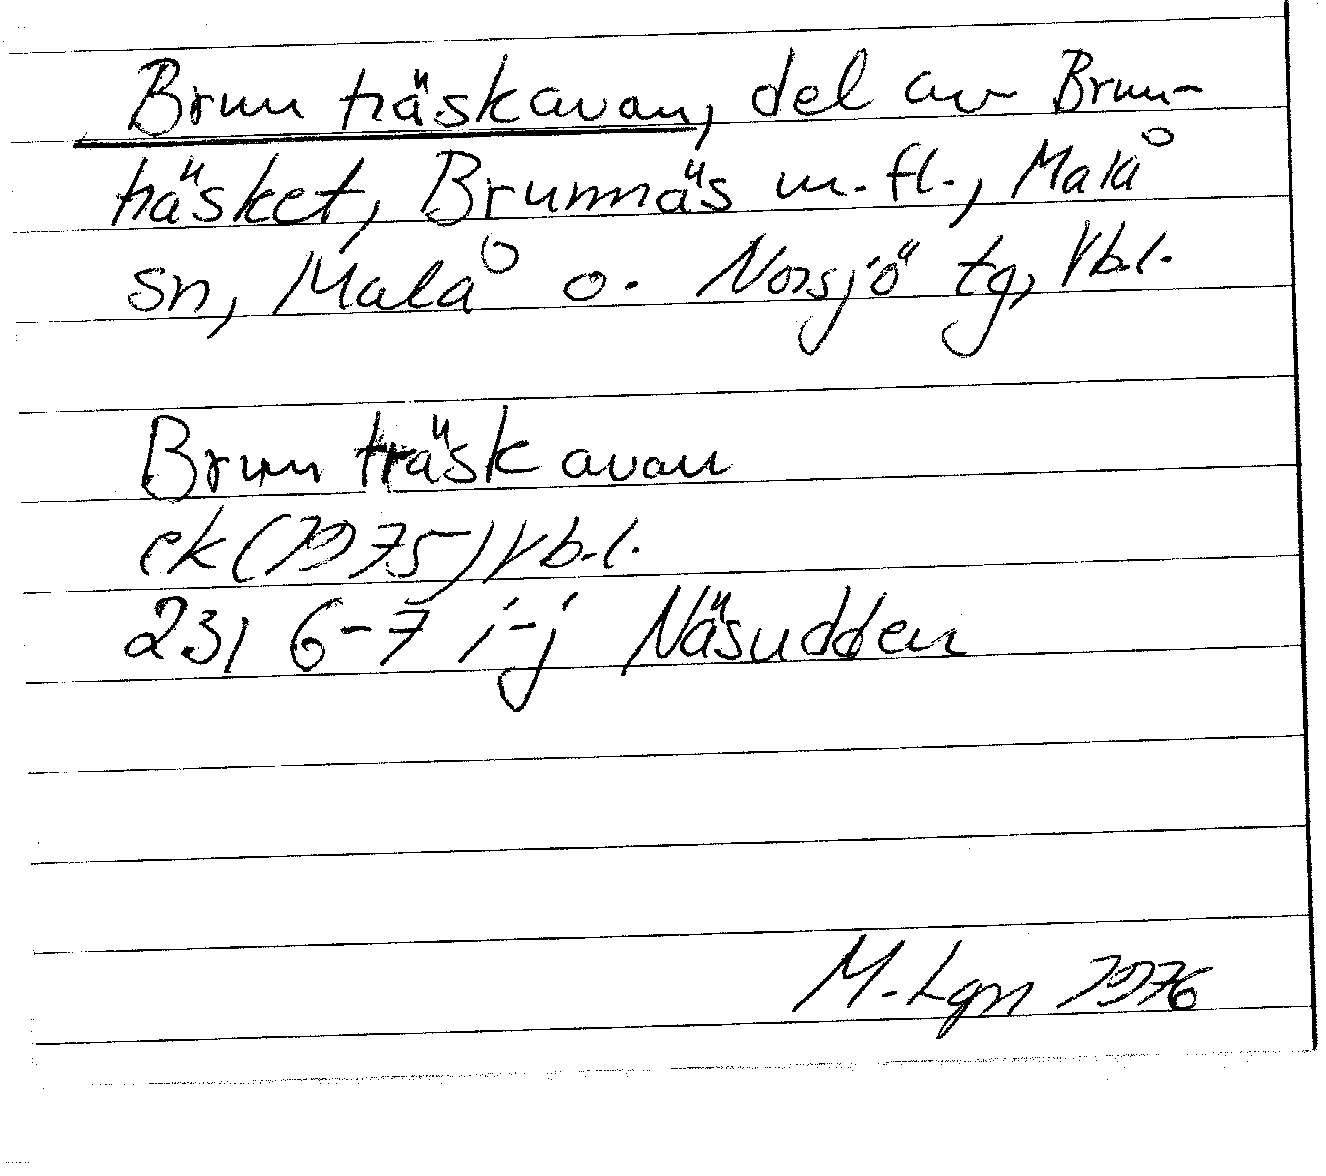 Brunträskavan, del av Brun-
träsket, Brunnäs m.fl., Malå
sn, Malå o. Norsjö tg, Vb.l.
Brunträskavan
ek (1975) Vb.l.
23I 6-7 i-j Näsudden
M. Lgn 1976